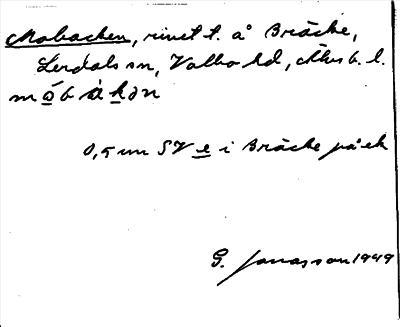 Mobacken, rivet t. å Bräcke,
Lerdals sn, Valbo hd, Älvsb. l.
mo̲b à k̲ən
0,5 mm SV e̲ i Bräcke på ek
G. Jonasson 1949